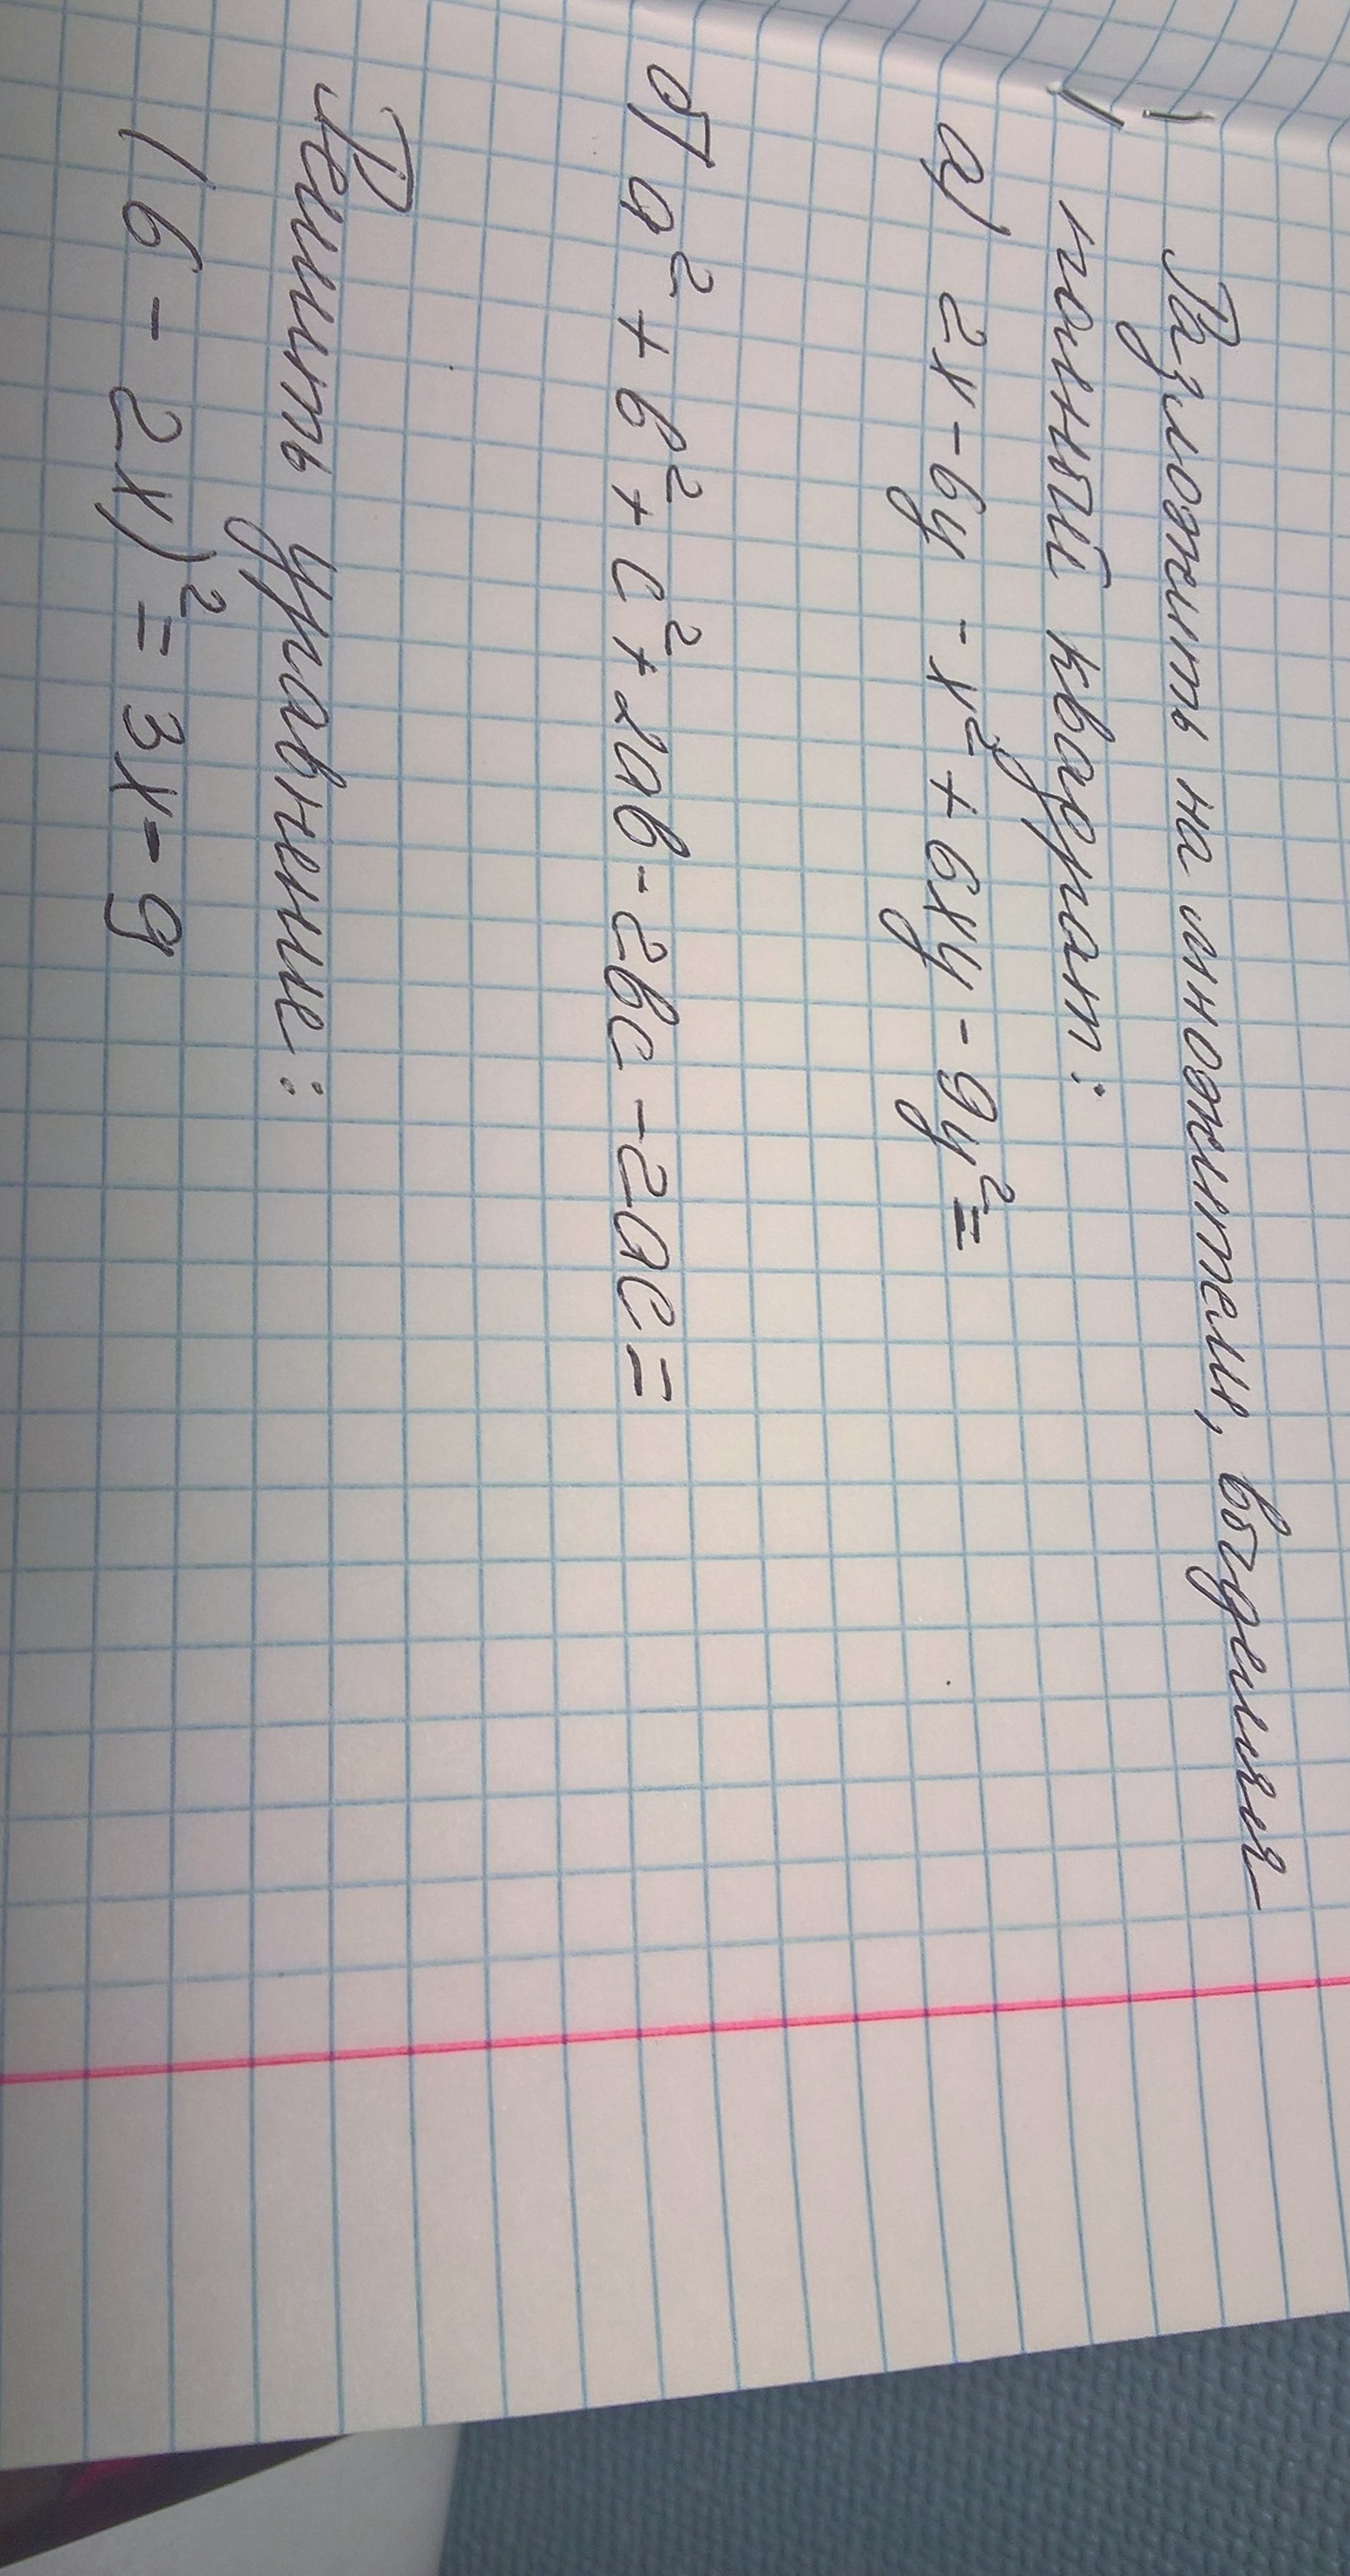 Разложить на множители, выделяя
полный квадрат:
а) 2x - 6y - x² + 6xy - 9y² =
б) a² + b² + c² + 2ab - 2bc - 2ac =
Решить уравнение:
(6 - 2x)² = 3x - 9